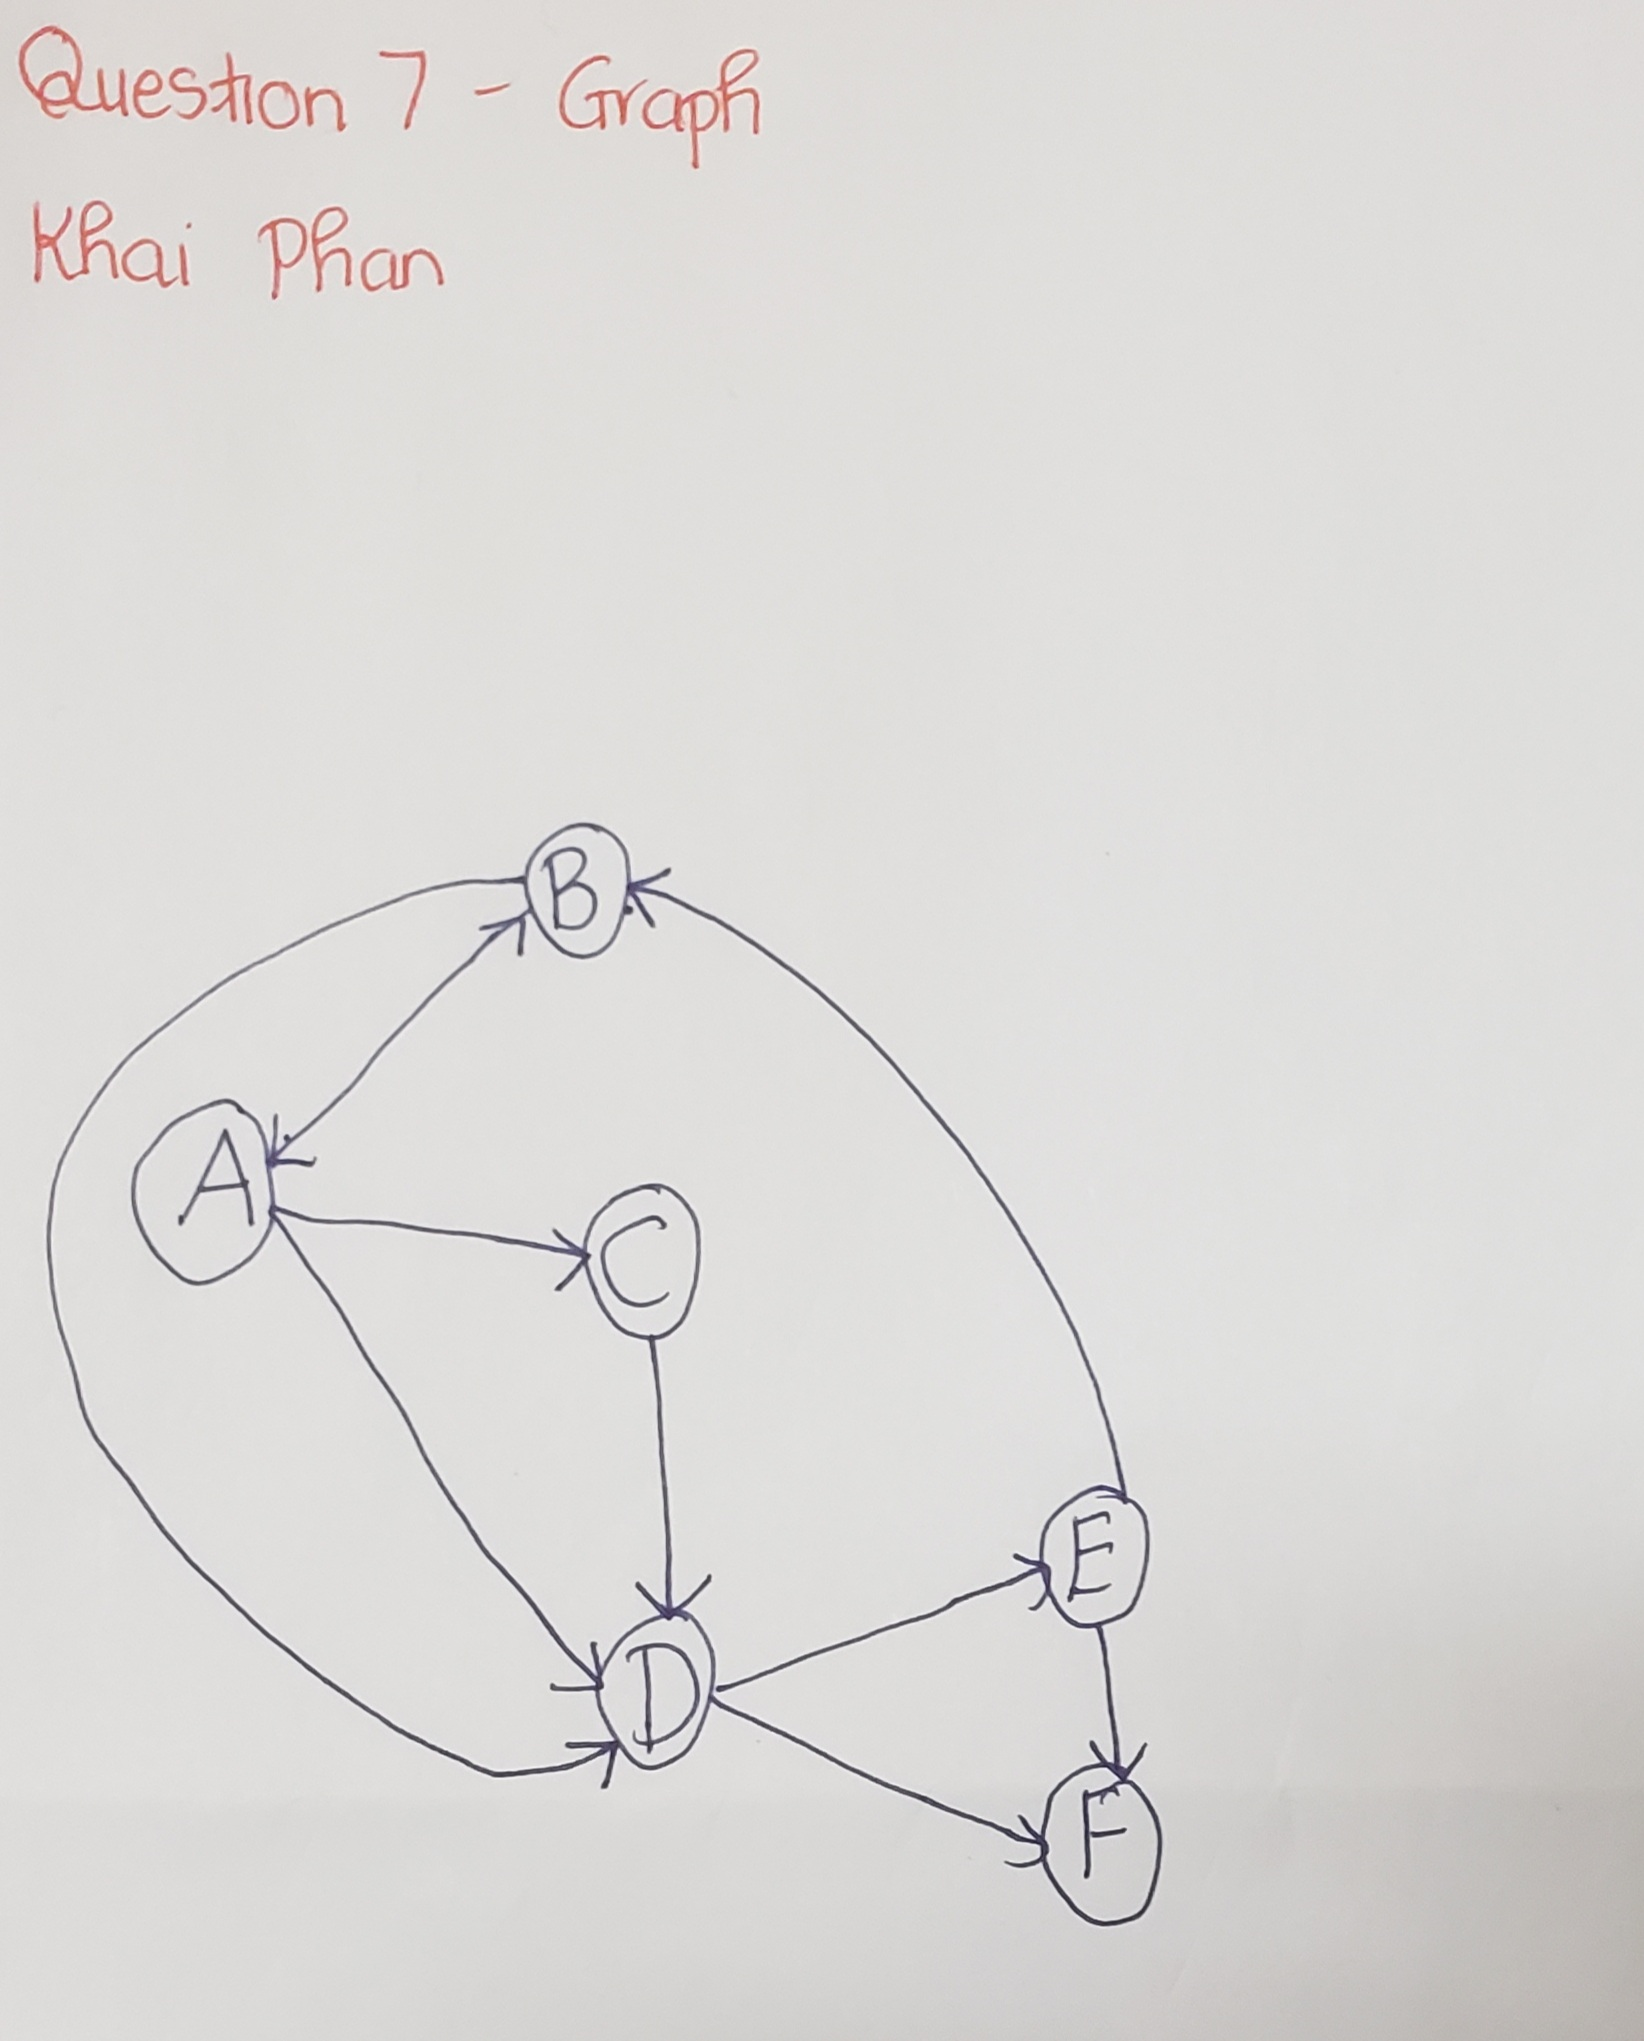 Question 7 - Graph
Khai Phan
B
A
C
E
D
F